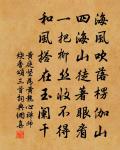 海風吹落楞伽山
四海山徒著眼看
一把柳絲收不得
和風搭在玉闌干
黃庭堅為黃龍心禪師
燒香頌三首